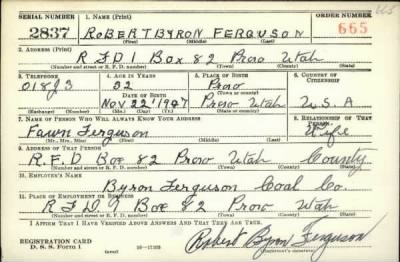 SERIAL NUMBER 1. NAME (Print) ORDER NUMBER
2837 ROBERT BYRON FERGUSON 665
(First) (Middle) (Last)
2. ADDRESS (Print)
R F D 1 Box 82 Provo Utah
(Number and street or R. F. D. number) (Town) (County) (State)
3. TELEPHONE 4. AGE IN YEARS 5. PLACE OF BIRTH 6. COUNTRY OF CITIZENSHIP
018J3 22 Provo
DATE OF BIRTH (Town or county)
Nov 22 1917 Provo Utah U.S.A
(Exchange) (Number) (Mo.) (Day) (Yr.) (State or country)
7. NAME OF PERSON WHO WILL ALWAYS KNOW YOUR ADDRESS 8. RELATIONSHIP OF THAT PERSON
Fawn Ferguson Wife
(Mr., Mrs., Miss) (First) (Middle) (Last)
9. ADDRESS OF THAT PERSON
R.F.D Box 82 Provo Utah County
(Number and street or R. F. D. number) (Town) (County) (State)
10. EMPLOYER'S NAME
Byron Ferguson Coal Co.
11. PLACE OF EMPLOYMENT OR BUSINESS
R F D 1 Box 82 Provo Utah
(Number and street or R. F. D. number) (Town) (County) (State)
I AFFIRM THAT I HAVE VERIFIED ABOVE ANSWERS AND THAT THEY ARE TRUE.
REGISTRATION CARD
D. S. S. FORM 1
Robert Byron Ferguson
(Registrant's signature)